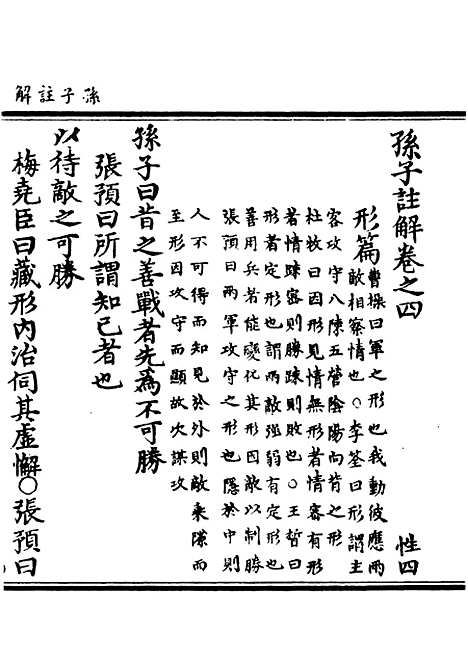 孫子註解
孫子註解卷之四 性四
形篇 曹操曰軍之形也我動彼應兩
敵相察情也○李筌曰形謂主
客攻守八陳五營陰陽向背之形
杜牧曰因形見情無形者情密有形
者情踈密則勝踈則敗也○王晳曰
形者形也謂兩敵強弱有定形也
善用兵者能變化其形因敵以制勝
張預曰兩軍攻守之形也隱於中則
人不可得而知見於外則敵乘隙而
至形因攻守而顯故次謀攻
孫子曰昔之善戰者先爲不可勝
張預曰所謂知己者也
以待敵之可勝
梅堯臣曰藏形內治伺其虛懈○張預曰